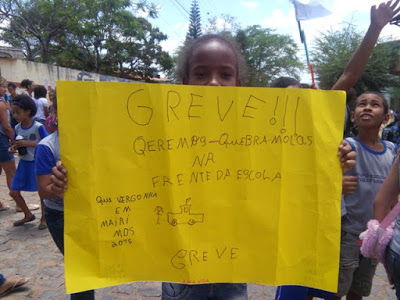 GREVE!!!
QEREMOS-QUEBRAMOLAS
NA
FRENTE DA ESCOLA
QUE VERGONHA
EM
MAIRI
MOS
2015
GREVE